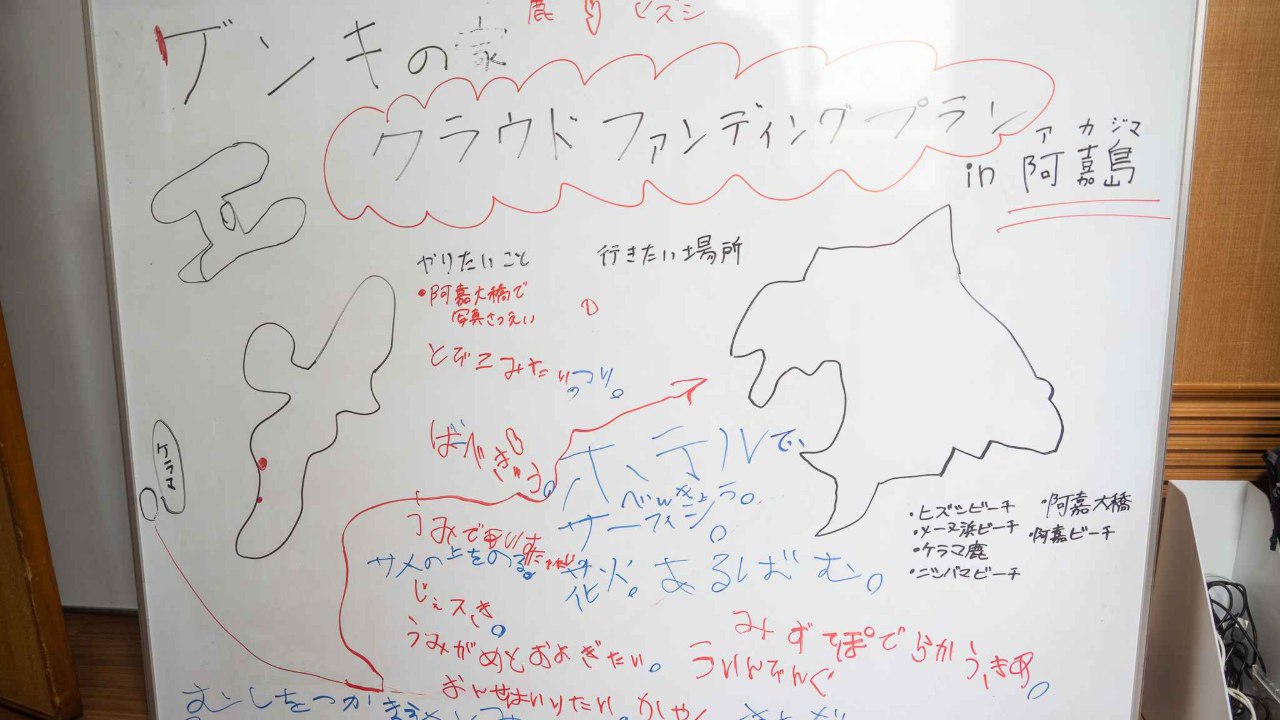 鹿 ヒズシ
ゲンキの家
クラウドファンディングプラン
アカジマ
in 阿嘉島
やりたいこと
行きたい場所
・阿嘉大橋で
写真さつえい
とびこみたい
つり。
ばーべきゅう。
ホテルで、
べんきょう。
サーフィン。
ケラマ
うみであいす
サメの上をのる。
花火。あるばむ。
じぇすき。
うみがめとおよぎたい。
みずてっぽうで
ういんでぃんぐ
・ヒズシビーチ
・メーヌ浜ビーチ
・ケラマ鹿
・ニシバマビーチ
・阿嘉大橋
・阿嘉ビーチ
むーしをつかまえ
おんせんはいりたい